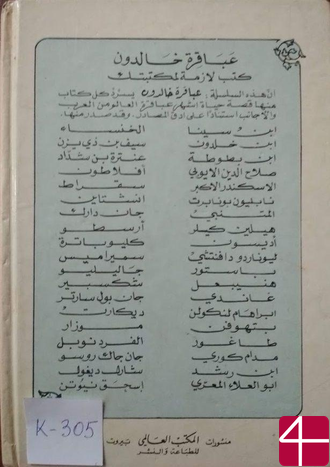 عباقرة خالدون
كتب لازمة لمكتبتك
ان هذه السلسلة: عباقرة خالدون يسرد كل كتاب
منها قصة حياة اشهر عباقرة العالم من العرب
والاجانب استنادًا على ادق المصادر. وقد صدر منها:
ابن سينا الخنساء
ابن خلدون سيف بن ذي يزن
ابن بطوطة عنترة بن شداد
صلاح الدين الايوبي أفلاطون
الاسكندر الاكبر سقراط
نابليون بونابرت انشتاين
المتنبي جان دارك
هيلين كيلر أرسطو
أديسون كليوباترة
ليوناردو دافنتشي سميراميس
باستور جاليليو
هنيبعل شكسبير
غاندي جان بول سارتر
ابراهام لنكولن ديكارت
بتهوفن موزار
طاغور الفرد نوبل
مدام كوري جان جاك روسو
ابن رشد شارل ديغول
ابو العلاء المعري إسحق نيوتن
K-305
منشورات المكتب العالمي بيروت
للطباعة والنشر
4